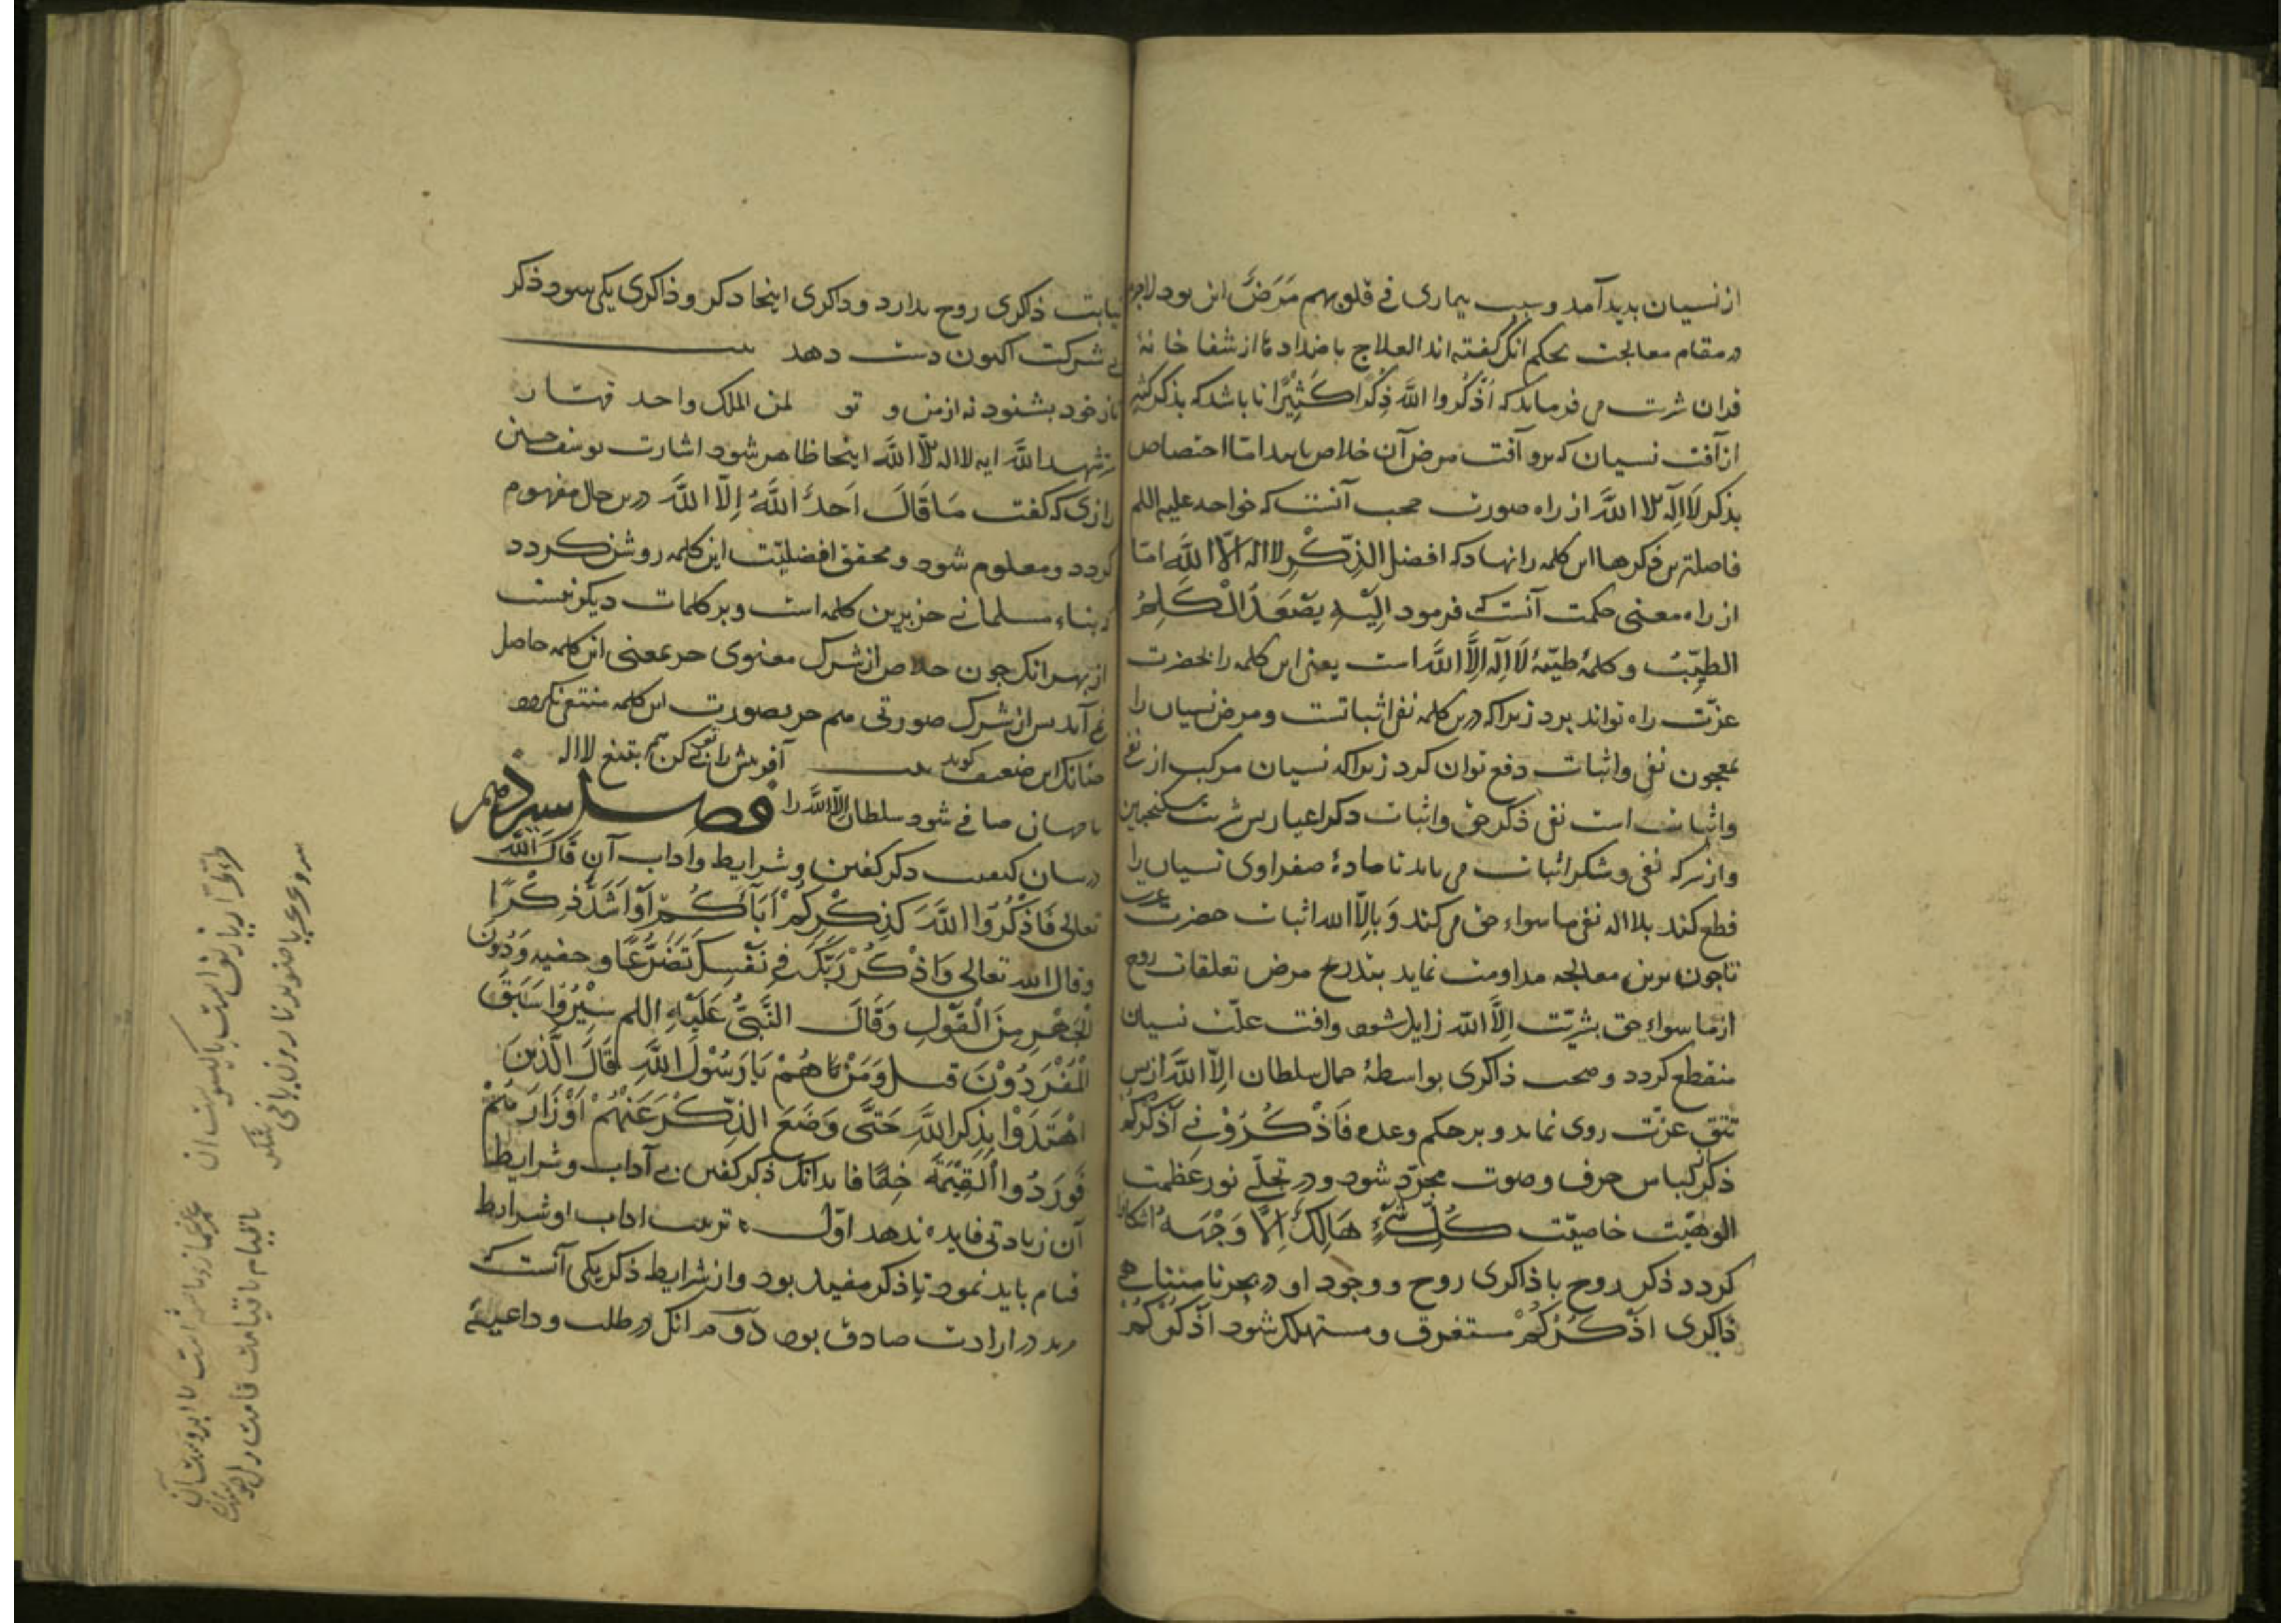 از نسیان بدید آمد و سبب بیماری فی قلوبهم مَرَضٌ این بود لاجرم
در مقام معالجت بحکم انک گفته اند العلاج باضدادها از شفا خانهٔ
قران شربت می فرماید که اُذْکُروا اللَّهَ ذِکْرًا کَثِیْرًا تا باشد که بذکر کثیر
از آفت نسیان که برو آفت مرض آن خلاص یابد امّا اختصاص
بذکر لَا اِلٰهَ الا اللَّه از راه صورت محب آنست که خواجه علیه السلم
فاضلترین ذکرها این کلمه را نهاد که افضل الذِّکْرِ لا اله اِلّا اللَّه امّا
از راه معنی حکمت آنست که فرمود اِلَیْهِ یَصْعَدُ الْکَلِمُ
الطیِّبُ و کلمهٔ طیّبهٔ لَا اِلٰهَ اِلَّا اللَّه است یعنی این کلمه را بحضرت
عزّت راه تواند بود زیرا که درین کلمه نفی اثباتست و مرض نسیان را
بمعجون نفی و اثبات دفع توان کرد زیرا که نسیان مرکب از نفی
و اثبات است نفی ذکر حق و اثبات ذکر اغیار پس شربت سکنجبین
و از سرکه نفی و شکر اثبات می باید تا مادهٔ صفراوی نسیان را
قطع کند بلا اله نفی ما سواء حق می کند وَ بالّا الله اثبات حضرت عزت
تا چون برین معالجه مداومت نماید بتدریج مرض تعلقات روح
از ما سواء حق بشربت اِلَّا اللَّه زایل شود و آفت علّت نسیان
منقطع کردد و صحت ذاکری بواسطهٔ جمال سلطان اِلَّا اللَّه از پس
تتق عزّت روی نماید و بر حکم وعده فَاذْکُرُوْنِی اَذْکُرْکُمْ
ذکر از لباس حرف و صوت مجرّد شود و در تجلّی نور عظمت
الوهیّت خاصیّت کُلُّ شَیْءٍ هَالِکٌ اِلَّا وَجْهَهُ آشکارا
کردد ذکر روح با ذاکری روح و وجود او در بحر نا متناهی
ذاکری اَذْکُرْکُمْ مستغرق و مستهلک شود اَذْکُرْکُمْ
نیابت ذکری روح بدارد و ذاکری اینجا ذکر و ذاکری یکی شود ذکر
بی شرکت اکنون دست دهد بیت
تا ز خود بشنود نه از من و تو لمن الملک واحد قهّار
شهد اللَّه انه لا اله الا اللَّه اینجا ظاهر شود اشارت یوسف حسین
رازی که گفت مَا قَالَ اَحَدٌ اَللَّهُ اِلَّا اللَّهَ درین حال مفهوم
کردد و معلوم شود و محقق افضلیّت این کلمه روشن کردد
که بناء مسلمانی جز برین کلمه است و بر کلمات دیکر نیست
از بهر انک چون خلاص از شرک معنوی جز بمعنی این کلمه حاصل
نمی آید پس از شرک صورتی هم جز بصورت این کلمه منتفی نکردد
چنانک این ضعیف کوید بیت آفرینش را نفی کن هم بتیغ لا اله
تا جهان صافی شود سلطان الّا اللَّه را فصل سیزدهم
در بیان کیفیت ذکر گفتن و شرایط و اداب آن قَالَ اللَّه
تعالی فَاذْکُرُوا اللَّهَ کَذِکْرِکُمْ اَبَآءَکُمْ اَوْ اَشَدَّ ذِکْرًا
و قال الله تعالی وَاذْکُرْ رَبَّکَ فِی نَفْسِکَ تَضَرُّعًا و خفیه وَ دُوْنَ
الْجَهْرِ مِنَ الْقَوْلِ وَ قَالَ النَّبِیُّ عَلَیْهِ السلم سِیْرُوا سَبَقَ
الْمُفْرَدُوْنَ قیل وَ مَنْ هُمْ یَا رَسُوْلَ اللَّهِ قَالَ الَّذِیْنَ
اهْتَدَوْا بِذِکْرِ اللَّهِ حَتَّی وَضَعَ الذِّکْرَ عَنْهُمْ اَوْزَارَهُمْ
فَوَرَدُوا الْقِیٰمَةَ خِفَافًا بدانک ذکر گفتن بی آداب و شرایط
آن زیادتی فایده ندهد اوّل ترتیب اداب او شرایط
قیام باید نمود تا ذکر مفید بود و از شرایط ذکر یکی آنست که
مرید در ارادت صادق بود دوّم انک در طلب و داعیهٔ